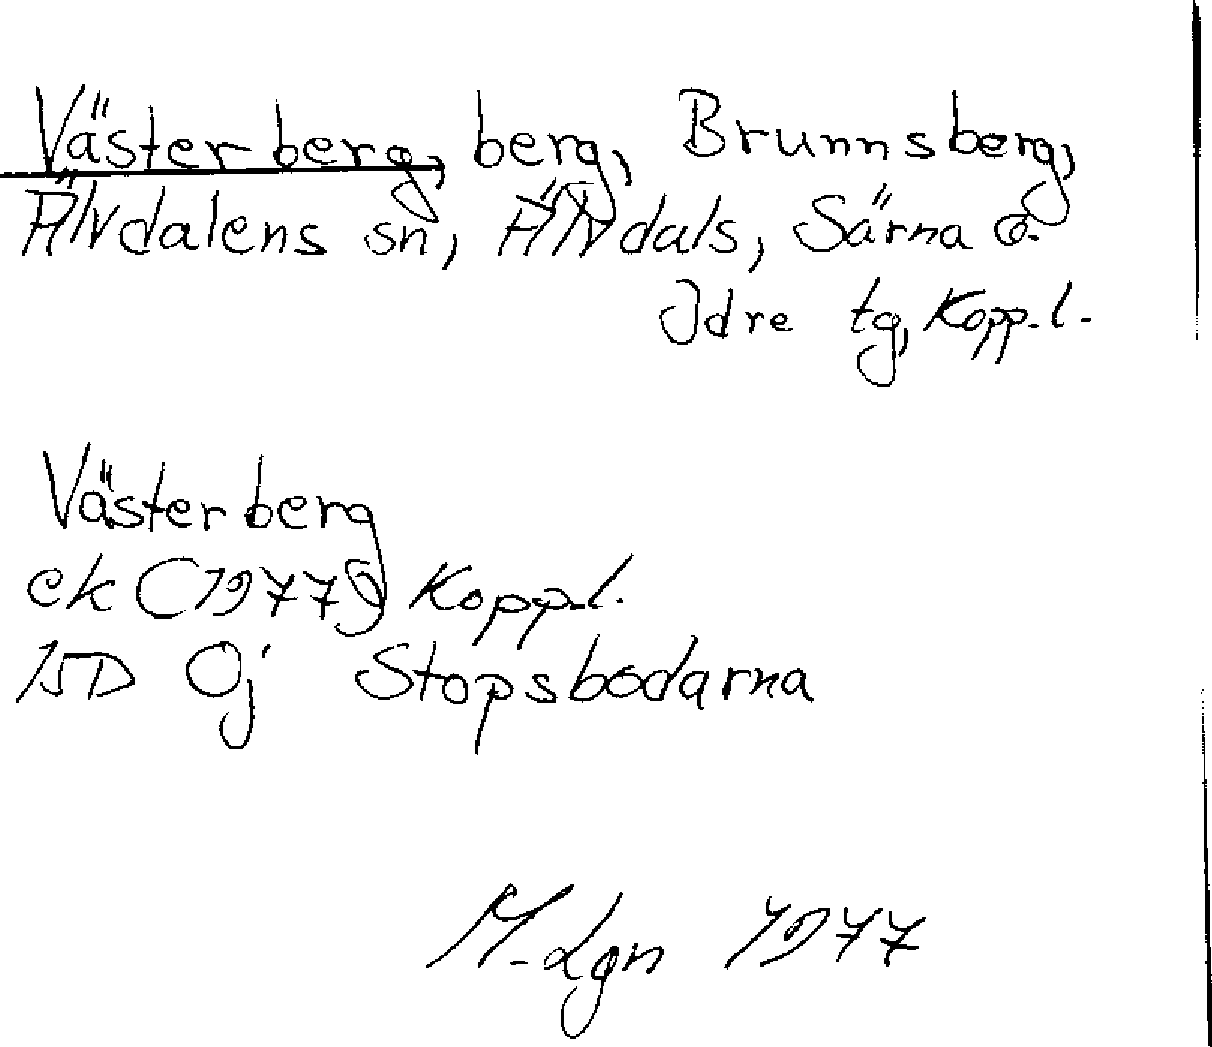 Västerberg, berg, Brunnsberg,
Älvdalens sn, Älvdals, Särna o.
Idre tg, Kopp. l.
Västerberg
ek (1977) Kopp. l.
15D 0j Stopsbodarna
M-dgn 1977